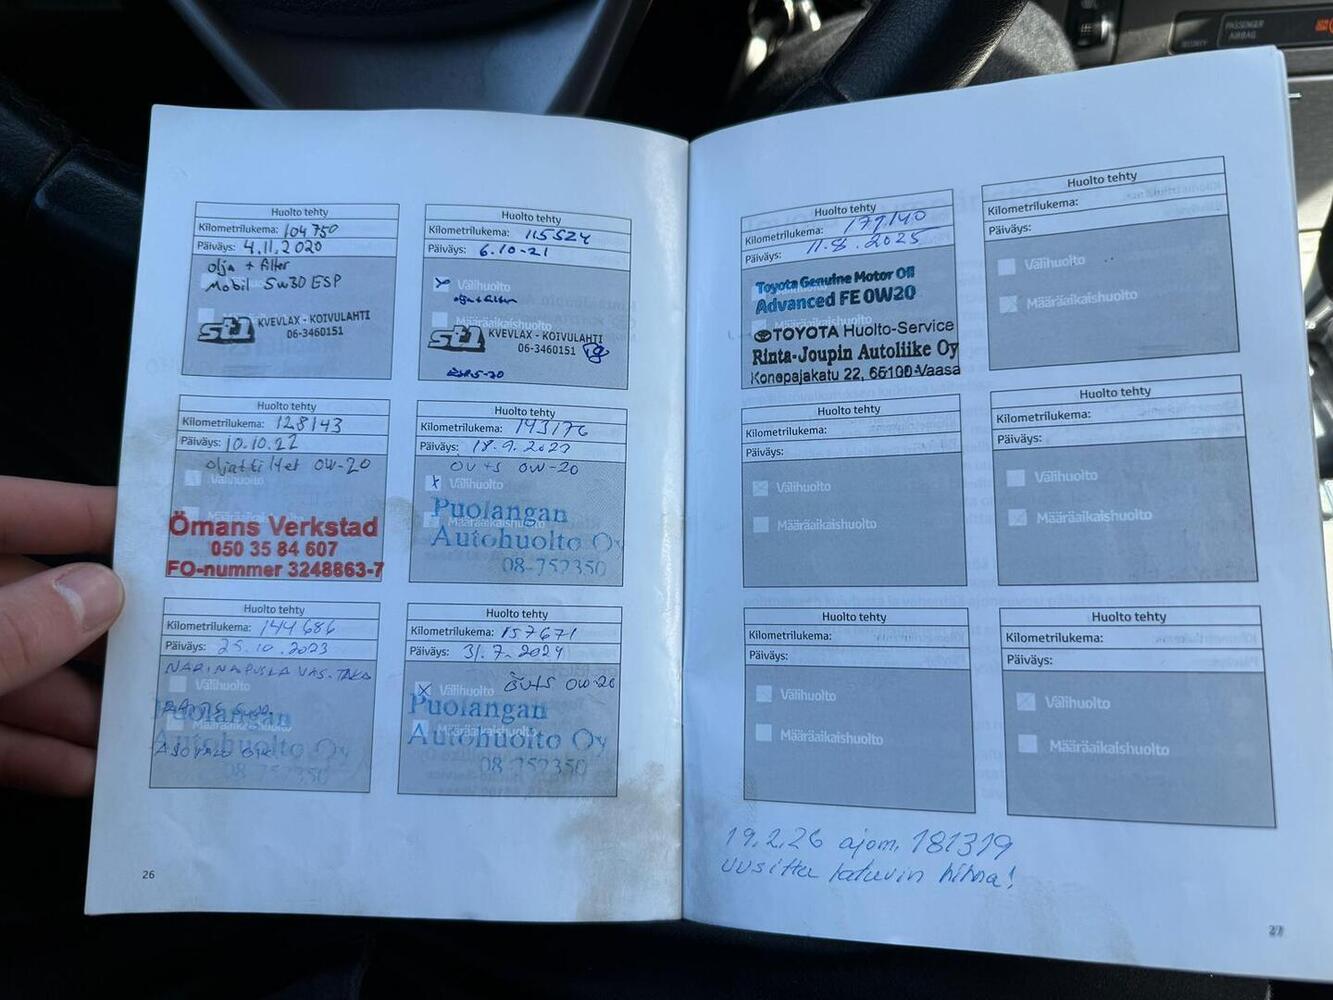 PASSENGER
AIRBAG
Huolto tehty
Kilometrilukema: 104 750
Päiväys: 4.11.2020
olja + filter
Mobil 5w30 ESP
st1 KVEVLAX - KOIVULAHTI
06-3460151
Huolto tehty
Kilometrilukema: 115524
Päiväys: 6.10-21
Välihuolto
olja+filter
Määräaikaishuolto
st1 KVEVLAX - KOIVULAHTI
06-3460151
Huolto tehty
Kilometrilukema: 128143
Päiväys: 10.10.22
0W-20
Välihuolto
Ömans Verkstad
050 35 84 607
FO-nummer 3248863-7
Huolto tehty
Kilometrilukema: 143176
Päiväys: 18.9.2023
ÖV+S 0W-20
Puolangan
Autohuolto Oy
08-752350
Huolto tehty
Kilometrilukema: 144686
Päiväys: 25.10.2023
Välihuolto
Puolangan
Autohuolto Oy
08 752350
Huolto tehty
Kilometrilukema: 157671
Päiväys: 31.7.2024
Välihuolto ÖV+S 0W-20
Puolangan
Autohuolto Oy
08 752350
26
Huolto tehty
Kilometrilukema: 179140
Päiväys: 11.8.2025
Toyota Genuine Motor Oil
Advanced FE 0W20
Määräaikaishuolto
TOYOTA Huolto-Service
Rinta-Joupin Autoliike Oy
Konepajakatu 22, 65100 Vaasa
Huolto tehty
Kilometrilukema:
Päiväys:
Välihuolto
Määräaikaishuolto
Huolto tehty
Kilometrilukema:
Päiväys:
Välihuolto
Määräaikaishuolto
Huolto tehty
Kilometrilukema:
Päiväys:
Välihuolto
Määräaikaishuolto
Huolto tehty
Kilometrilukema:
Päiväys:
Välihuolto
Määräaikaishuolto
Huolto tehty
Kilometrilukema:
Päiväys:
Välihuolto
Määräaikaishuolto
19.2.26 ajom. 181319
Uusittu laturin hihna!
27